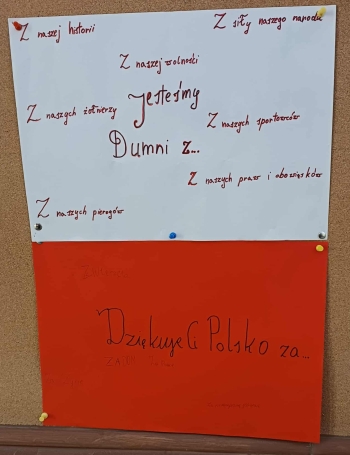 Z naszej historii
Z siły naszego narodu
Z naszej wolności
Jesteśmy
Z naszych żołnierzy
Z naszych sportowców
Dumni z...
Z naszych praw i obowiązków
Z naszych pierogów
Dziękuję Ci Polsko za...